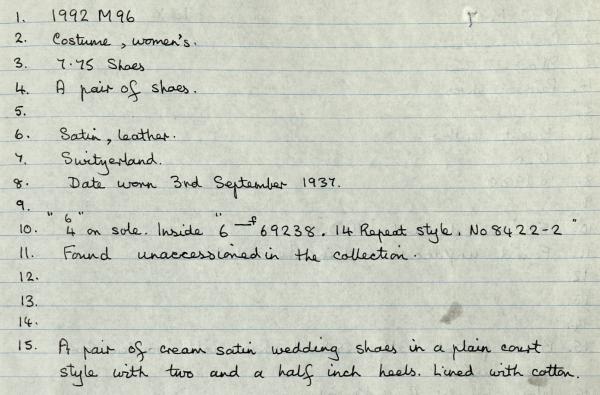 1. 1992 M96
2. Costume, women's.
3. 7.75 Shoes
4. A pair of shoes.
5.
6. Satin, leather.
7. Switzerland.
8. Date worn 3rd September 1937.
9.
10. "6/4" on sole. Inside "6 69238. 14 Repeat style. No 8422-2"
11. Found unaccessioned in the collection.
12.
13.
14.
15. A pair of cream satin wedding shoes in a plain court
style with two and a half inch heels. Lined with cotton.